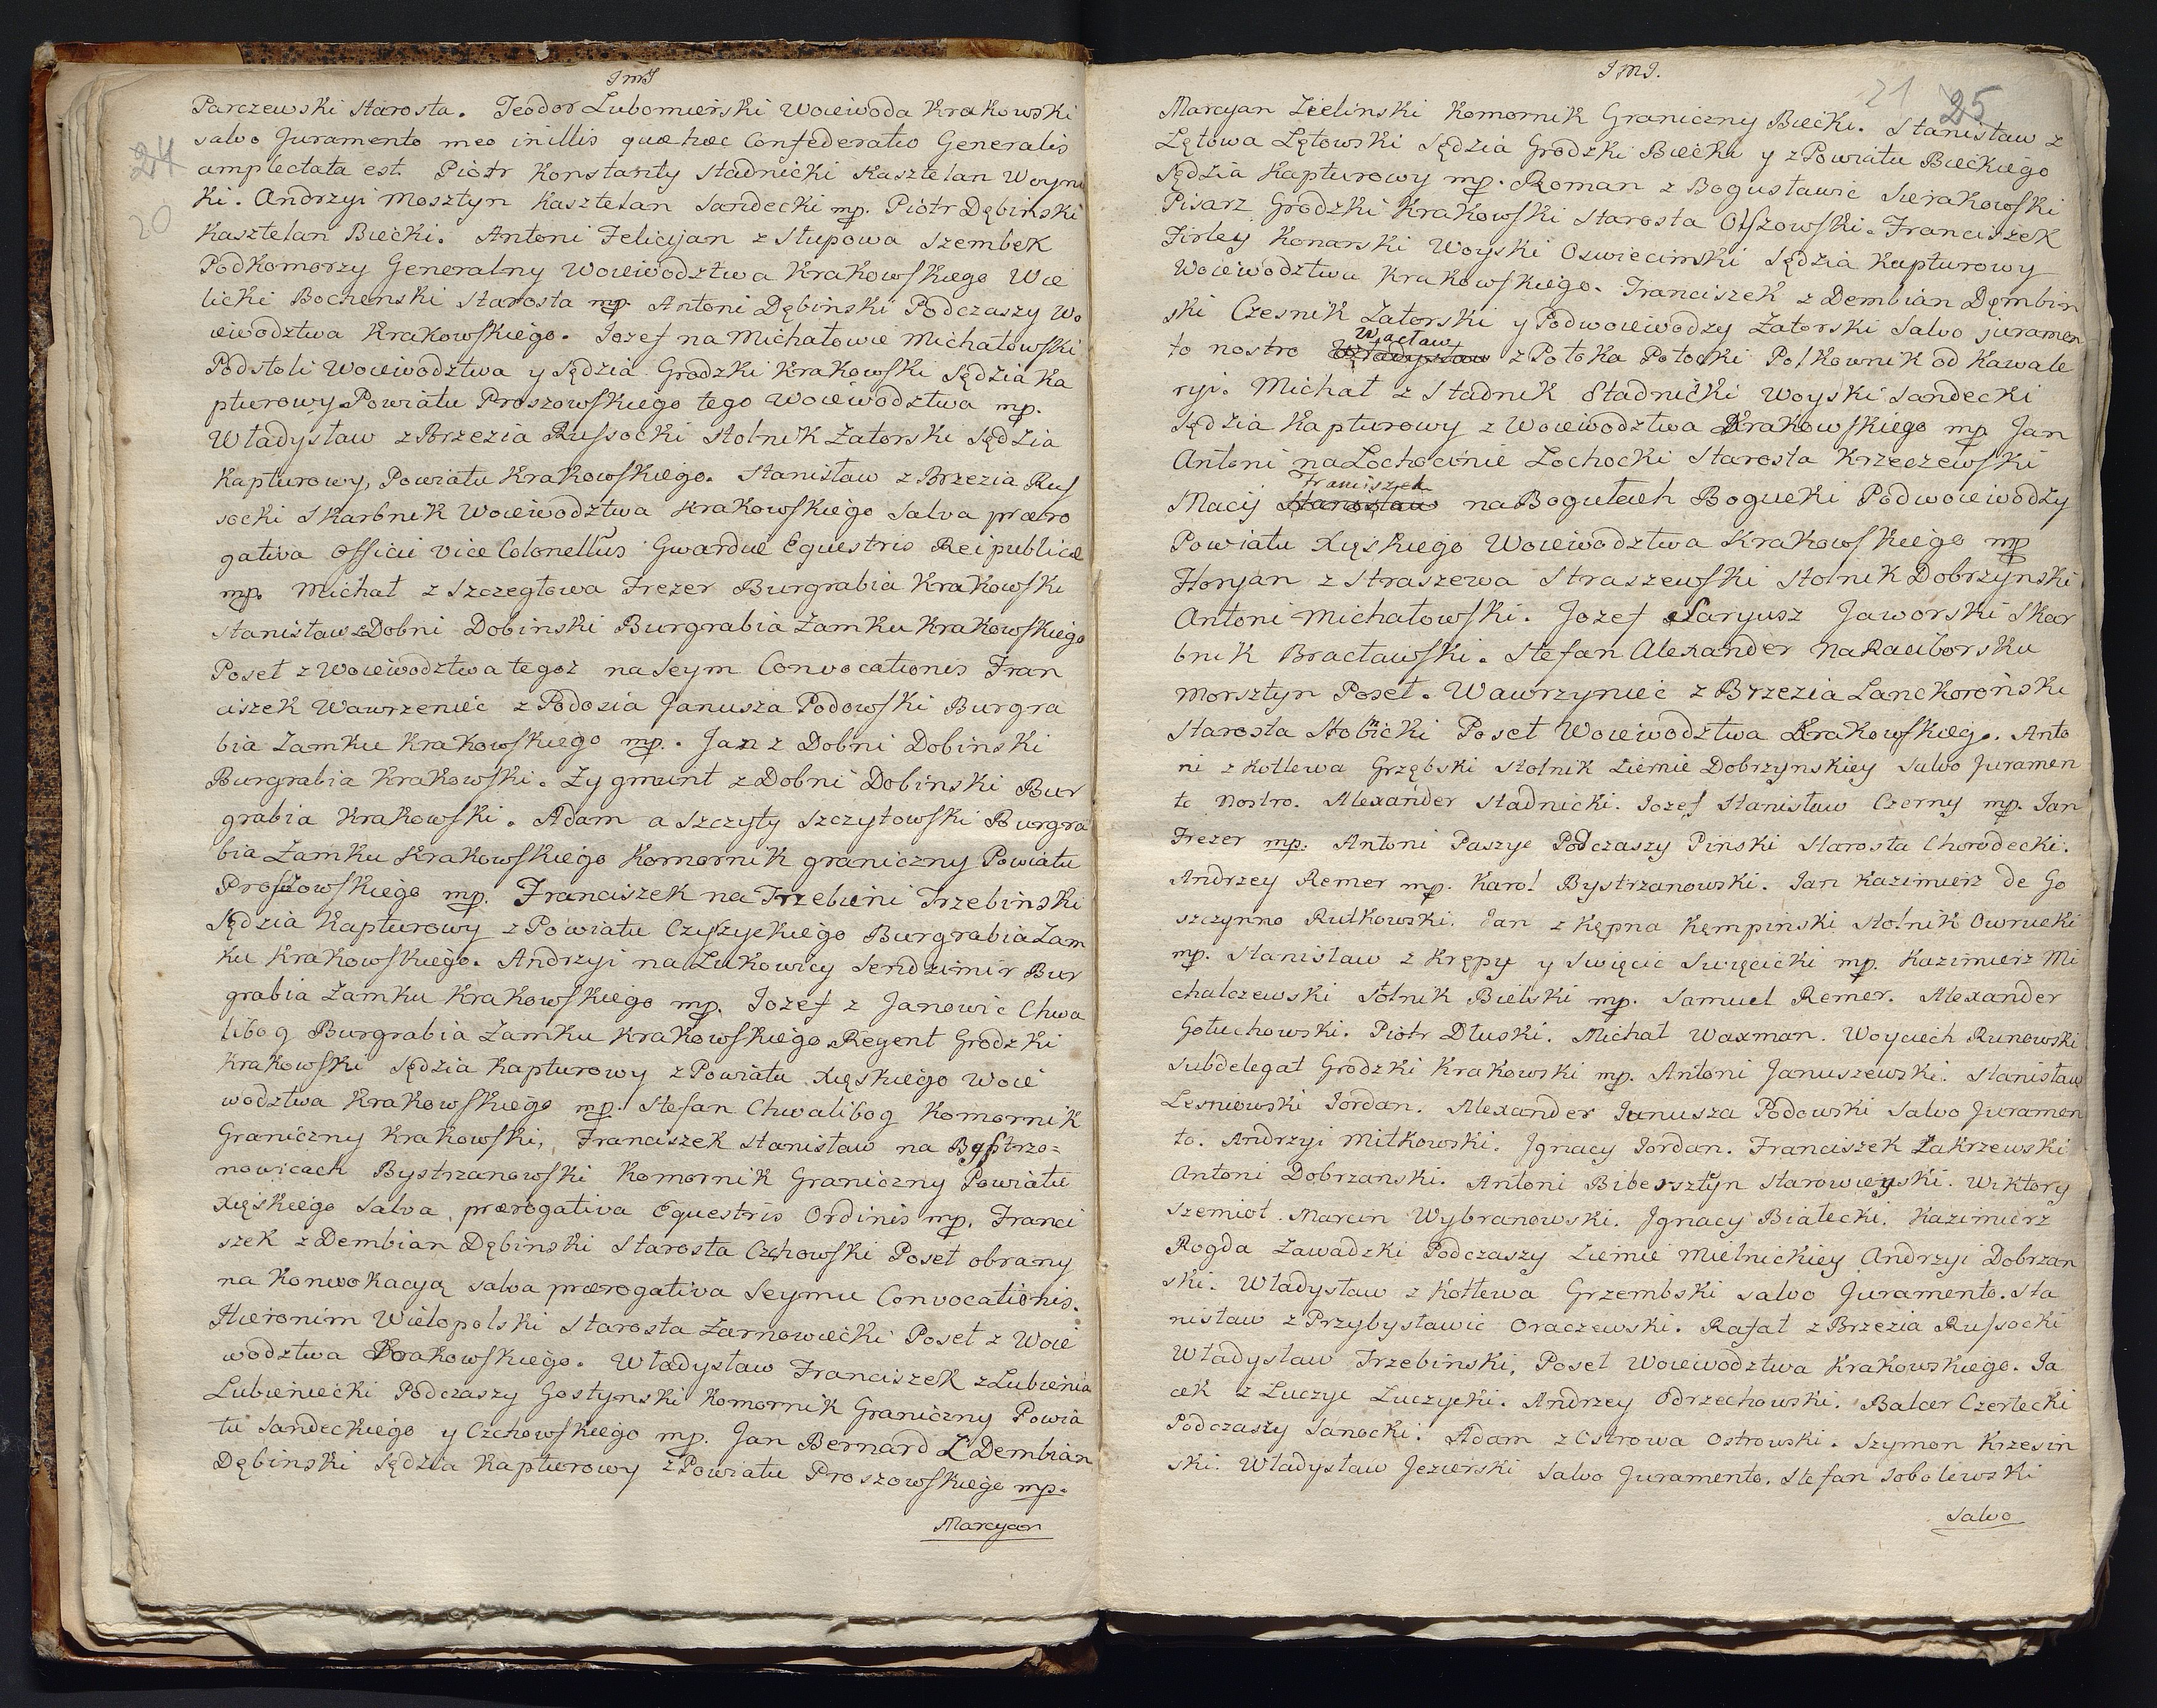 JMJ
24
20
Parczewski Starosta. Teodor Lubomierski Woiewoda Krakowski
salvo Juramento meo in illis quæ hæc Confederatio Generalis
amplectata est. Piotr Konstanty Stadnicki Kasztelan Woyni
ki. Andrzyi Mosztyn Kasztelan Sandecki mp. Piotr Dębinski
Kasztelan Biecki. Antoni Felicyan z Słupowa Szembek
Podkomorzy Generalny Woiewodztwa Krakowskiego Wie
licki Bochenski Starosta mp. Antoni Dębinski Podczaszy Wo
iewodztwa Krakowskiego. Iozef na Michałowie Michałowski
Podstoli Woiewodztwa y Sędzia Grodzki Krakowski Sędzia Ka
pturowy Powiatu Proszowskiego tego Woiewodztwa mp.
Władysław z Brzezia Russocki Stolnik Zatorski Sędzia
Kapturowy, Powiatu Krakowskiego. Stanisław z Brzezia Rus
socki Skarbnik Woiewodztwa Krakowskiego Salva præro
gativa Officii vice Colonellus Gwardiæ Equestris Reipublicæ
mp. Michał z Szczegłowa Frezer Burgrabia Krakowski
Stanisław z Dobni Dobinski Burgrabia Zamku Krakowskiego
Poseł z Woiewodztwa tegoż na Seym Convocationis Fran
ciszek Wawrzeniec z Podosia Janusza Podowski Burgra
bia Zamku Krakowskiego mp. Jan z Dobni Dobinski
Burgrabia Krakowski. Zygmunt z Dobni Dobinski Bur
grabia Krakowski. Adam a Szczyty Szczytowski Burgra
bia Zamku Krakowskiego Komornik graniczny Powiatu
Proszowskiego mp. Franciszek na Trzebieni Trzebinski
Sędzia Kapturowy z Powiatu Czyszyckiego Burgrabia Zam
ku Krakowskiego. Andrzyi na Lukowicy Sendzimir Bur
grabia Zamku Krakowskiego mp. Iozef z Janowic Chwa
libog Burgrabia Zamku Krakowskiego Regent Grodzki
Krakowski Sędzia Kapturowy z Powiatu Xięskiego Woie
wodztwa Krakowskiego mp. Stefan Chwalibog Komornik
Graniczny Krakowski, Franciszek Stanisław na Bystrzo=
nowicach Bystrzanowski Komornik Graniczny Powiatu
Xięskiego Salva prærogativa Equestris Ordinis mp. Franci
szek z Dembian Dębinski Starosta Czchowski Poseł obrany
na Konwokacyą salva prærogativa Seymu Convocationis.
Hieronim Wielopolski Starosta Zarnowiecki Poseł z Woie
wodztwa Krakowskiego. Władysław Franciszek z Lubienia
Lubieniecki Podczaszy Gostynski Komornik Graniczny Powia
tu Sandeckiego y Czchowskiego mp. Jan Bernard Z Dembian
Dębinski Sędzia Kapturowy z Powiatu Proszowskiego mp.
Marcyan
JMJ.
21 25
Marcyan Zielinski Komornik Graniczny Biecki. Stanisław z
Lętowa Lętowski Sędzia Grodzki Biecki y z Powiatu Bieckiego
Sędzia Kapturowy mp. Roman z Bogusławic Sierakowski
Pisarz Grodzki Krakowski Starosta Olszowski. Franciszek
Firley Konarski Woyski Oswiecimski Sędzia Kapturowy
Woiewodztwa Krakowskiego. Franciszek z Dembian Dęmbin
ski Czesnik Zatorski y Podwoiewodzy Zatorski Salvo juramen
Wacław
to nostro Władysław z Potoka Potocki Połkownik od Kawale
ryi. Michał z Stadnik Stadnicki Woyski Sandecki
Sędzia Kapturowy z Woiewodztwa Krakowskiego mp Jan
Antoni na Lochocinie Lochocki Starosta Krzeczewski
Franciszek
Maciy Stanisław na Bogutach Bogucki Podwoiewodzy
Powiatu Xięskiego Woiewodztwa Krakowskiego mp
Floryan z Straszewa Straszewski Stolnik Dobrzynski
Antoni Michałowski. Jozef Saryusz Jaworski Skar
bnik Bracławski. Stefan Alexander na Raciborsku
Morsztyn Poseł. Wawrzyniec z Brzezia Lanckoroński
Starosta Stobnicki Poseł Woiewodztwa Krakowskiego. Anto
ni z Kotlewa Grzębski Stolnik Ziemie Dobrzynskiey Salvo Juramen
to nostro. Alexander Stadnicki. Iozef Stanisław Czerny mp. Jan
Frezer mp. Antoni Paszyc Podczaszy Pinski Starosta Chorodecki.
Andrzey Remer mp. Karol Bystrzanowski. Ian Kazimierz de Go
szczynno Rutkowski. Ian z Kępna Kempinski Stolnik Owrucki
mp. Stanisław z Krępy y Swięcic Swięcicki mp. Kazimierz Mi
chalczewski Stolnik Bielski mp. Samuel Remer. Alexander
Gołuchowski. Piotr Dłuski. Michał Waxman. Woyciech Runowski
Subdelegat Grodzki Krakowski mp. Antoni Januszewski. Stanisław
Lesniowski Iordan. Alexander Ianusza Podowski Salvo Juramen
to. Andrzyi Mitkowski. Ignacy Iordan. Franciszek Zakrzewski
Antoni Dobrzanski. Antoni Bibersztyn Starowieyski. Wiktory
Szemiot. Marcin Wybranowski. Jgnacy Białecki. Kazimierz
Rogda Zawadzki Podczaszy Ziemie Mielnickiey Andrzyi Dobrzan
ski. Władysław z Kotlewa Grzembski salvo Juramento. Sta
nisław z Przybysławic Oraczewski. Rafał z Brzezia Russocki
Władysław Trzebinski, Poseł Woiewodztwa Krakowskiego. Ia
cek z Luczyc Luczycki. Andrzey Odrzechowski. Balcer Czertecki
Podczaszy Sanocki. Adam z Ostrowa Ostrowski. Szymon Krzesin
ski. Władysław Jezierski Salvo Juramento. Stefan Sobolewski
Salvo